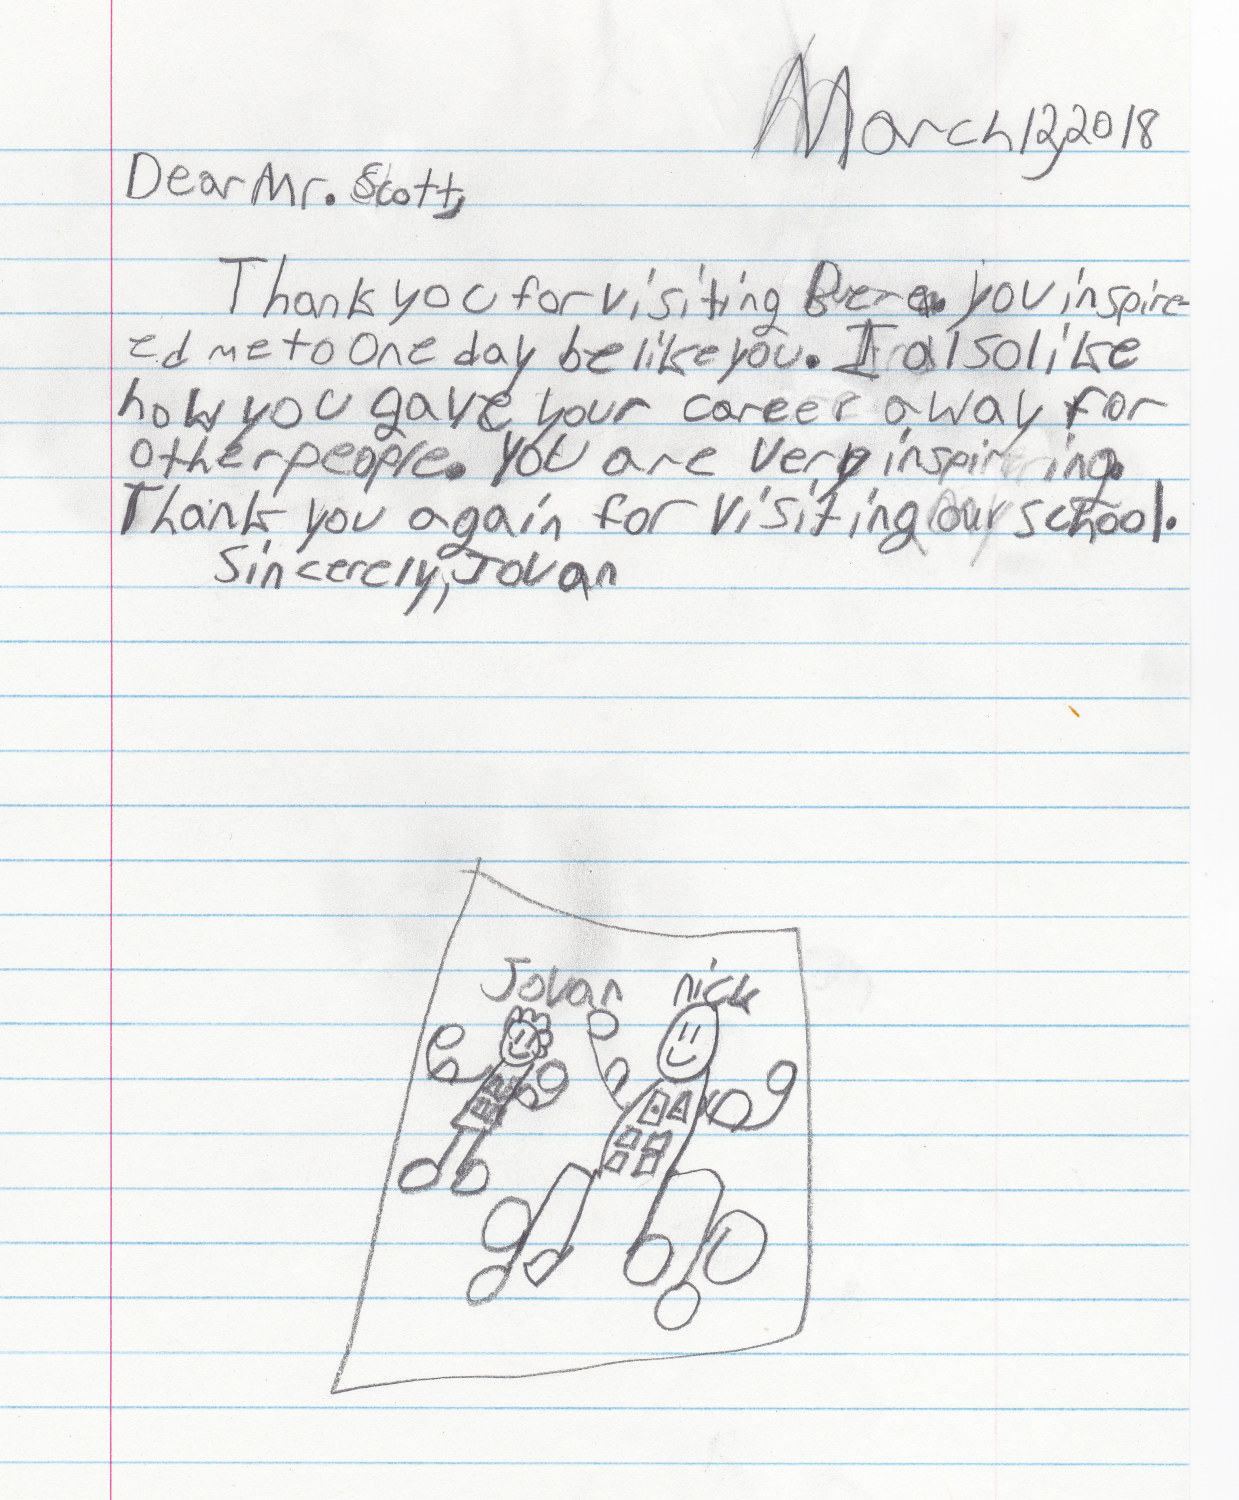 March 12, 2018
Dear Mr. Scott,
Thank you for visiting you inspire-
ed me to One day be like you. I also like
how you gave your career away for
other people. You are very inspiring.
Thank you again for visiting our school.
Sincerely, Jovan
Jovan nick